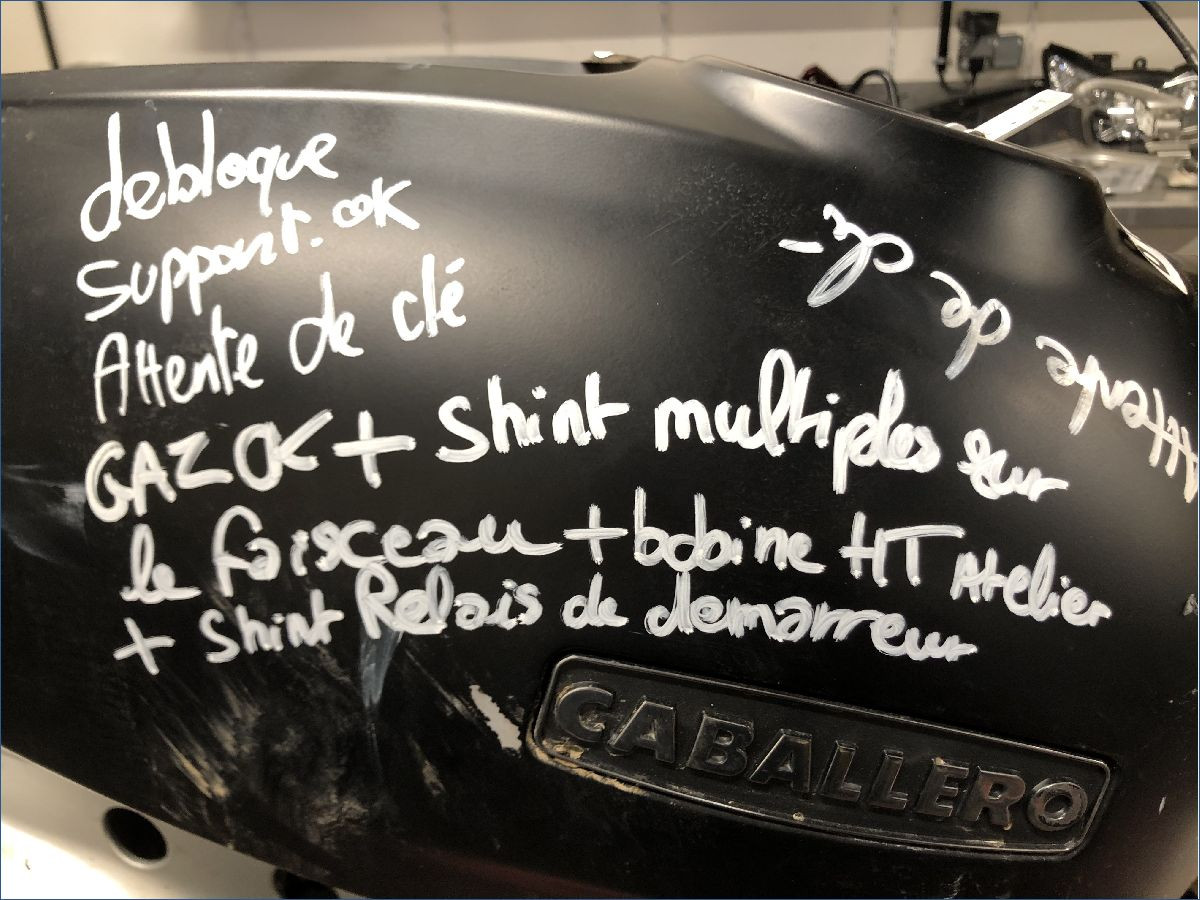 debloque
support. OK
Attente de clé
GAZ OK + Shint multiples sur
le faisceau + bobine HT Atelier
+ Shint Relais de demarreur
Attente de clé -
CABALLERO